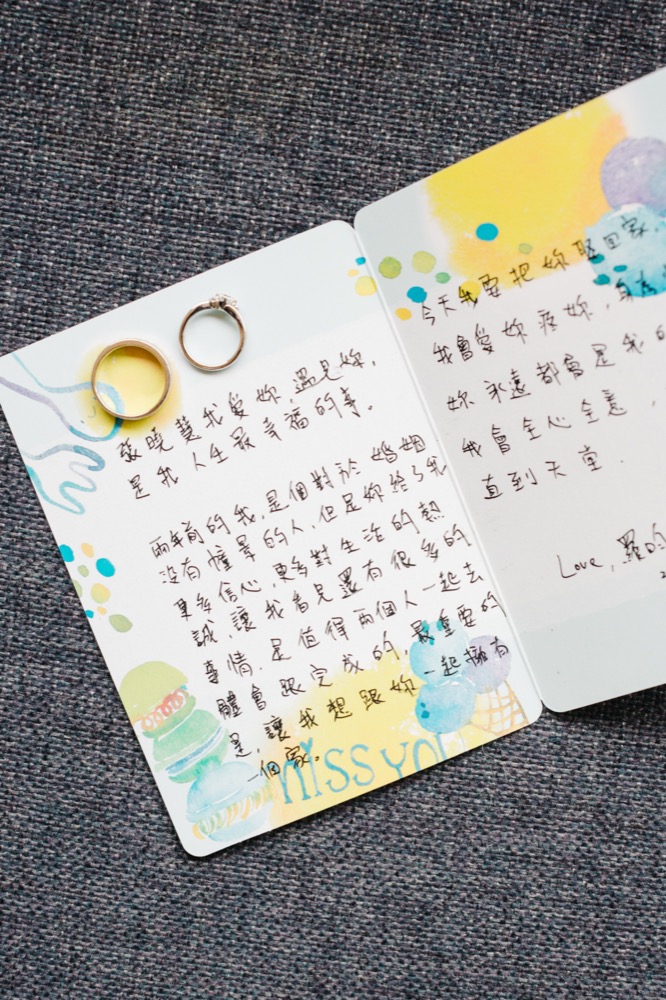 張曉慧我愛妳，遇見妳，
是我人生最幸福的事。
兩年前的我，是個對於婚姻
沒有憧憬的人，但是妳給了我
更多信心，更多對生活的熱
誠，讓我看見還有很多的
事情，是值得兩個人一起去
體會跟完成的，最重要的
是，讓我想跟妳一起擁有
一個家。
miss you
今天我要把妳娶回家，
我會愛妳疼妳，
妳永遠都會是我的
我會全心全意，
直到天堂．
Love, 羅